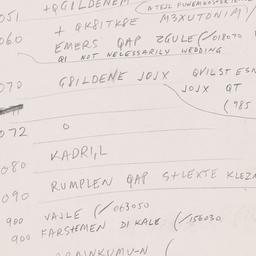 051 +QGILDENEM
+ QK8ITK8E M3XUTONIM
060 EMERS QAP ZGULE (/018070
QI NOT NECESSARILY WEDDING
070 G8ILDENE JOJX QVILST ESN
JOJX QT
(985
072 O
080 KADRI,L
090 RUMPLEN QAP S+LEXTE KLEZM
900 VAJLE (/063050
900 FARSTEMEN DI KALE (/156030